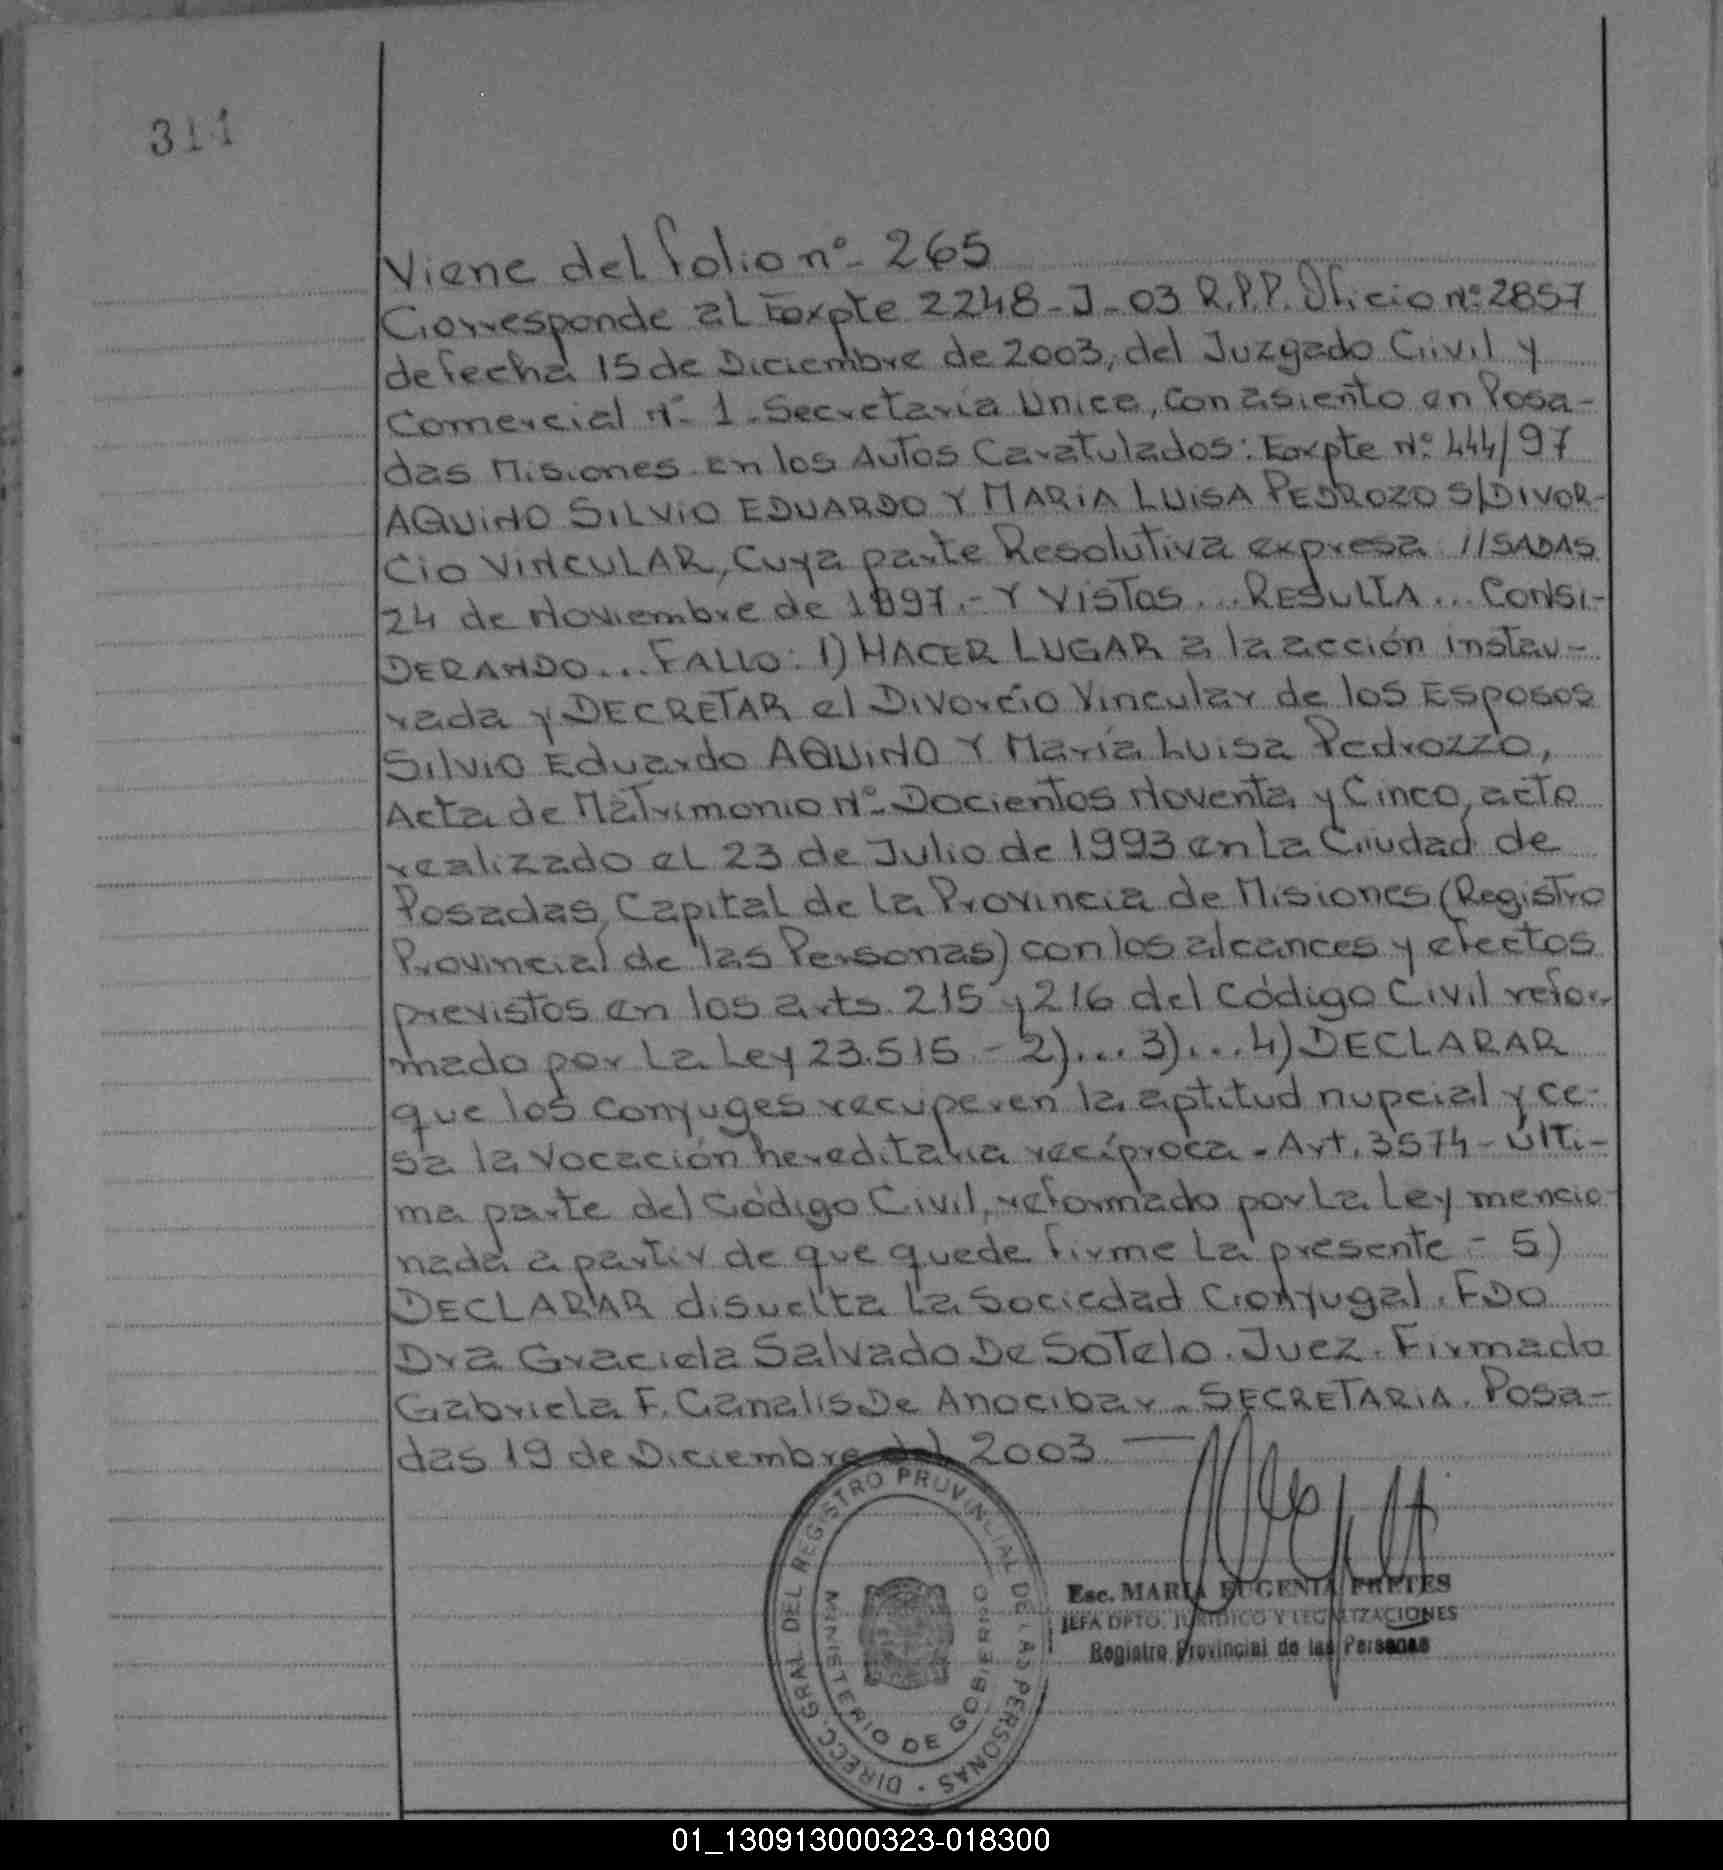 311
Viene del folio nº- 265
Corresponde al Expte 2248-J-03 R.P.P. Oficio nº 2857
de fecha 15 de Diciembre de 2003, del Juzgado Civil y
Comercial Nº- 1 - Secretaria Unica, con asiento en Posa-
das Misiones en los Autos Caratulados: Expte Nº 444/97
AQUINO SILVIO EDUARDO Y MARIA LUISA PEDROZO S/DIVOR-
CIO VINCULAR, Cuya parte Resolutiva expresa //SADAS
24 de Noviembre de 1997.- Y Vistos... RESULTA... CONSI-
DERANDO... FALLO: 1) HACER LUGAR a la acción instau-
rada y DECRETAR el Divorcio Vincular de los Esposos
Silvio Eduardo AQUINO Y María Luisa Pedrozzo,
Acta de Matrimonio Nº Docientos Noventa y Cinco, acto
realizado el 23 de Julio de 1993 en La Ciudad de
Posadas, Capital de la Provincia de Misiones (Registro
Provincial de las Personas) con los alcances y efectos
previstos en los arts. 215 y 216 del Código Civil refor-
mado por La Ley 23.515 - 2)... 3)... 4) DECLARAR
que los conyuges recuperen la aptitud nupcial y ce-
sa la vocación hereditaria recíproca - Art. 3574 - últi-
ma parte del Código Civil, reformado por La Ley mencio-
nada a partir de que quede firme La presente - 5)
DECLARAR disuelta La Sociedad Conyugal. FDO
Dra Graciela Salvado De Sotelo. Juez. Firmado
Gabriela F. Canalis De Anocibar - SECRETARIA. Posa-
das 19 de Diciembre del 2003
DIRECC. GRAL DEL REGISTRO PROVINCIAL DE LAS PERSONAS
MINISTERIO DE GOBIERNO
Esc. MARIA EUGENIA FRETES
JEFA DPTO. JURIDICO Y LEGALIZACIONES
Registro Provincial de las Personas
01_130913000323-018300